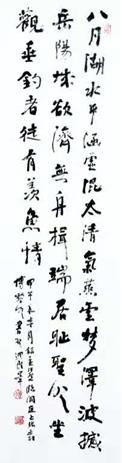 八月湖水平涵虛混太清氣蒸雲夢澤波撼
岳陽城欲濟無舟楫端居耻聖明坐
觀垂釣者徒有羨魚情
甲午